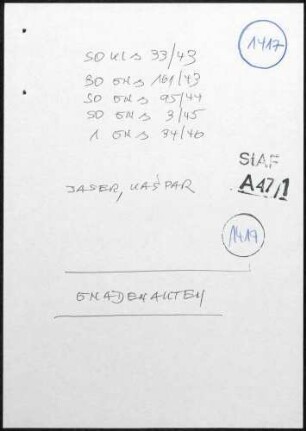 1417
SO KLS 33/43
SO GNS 161/43
SO GNS 95/44
SO GNS 3/45
1 GNS 34/46
StAF
A47/1
JASER, KAŠPAR
1417
GNADENAKTEN